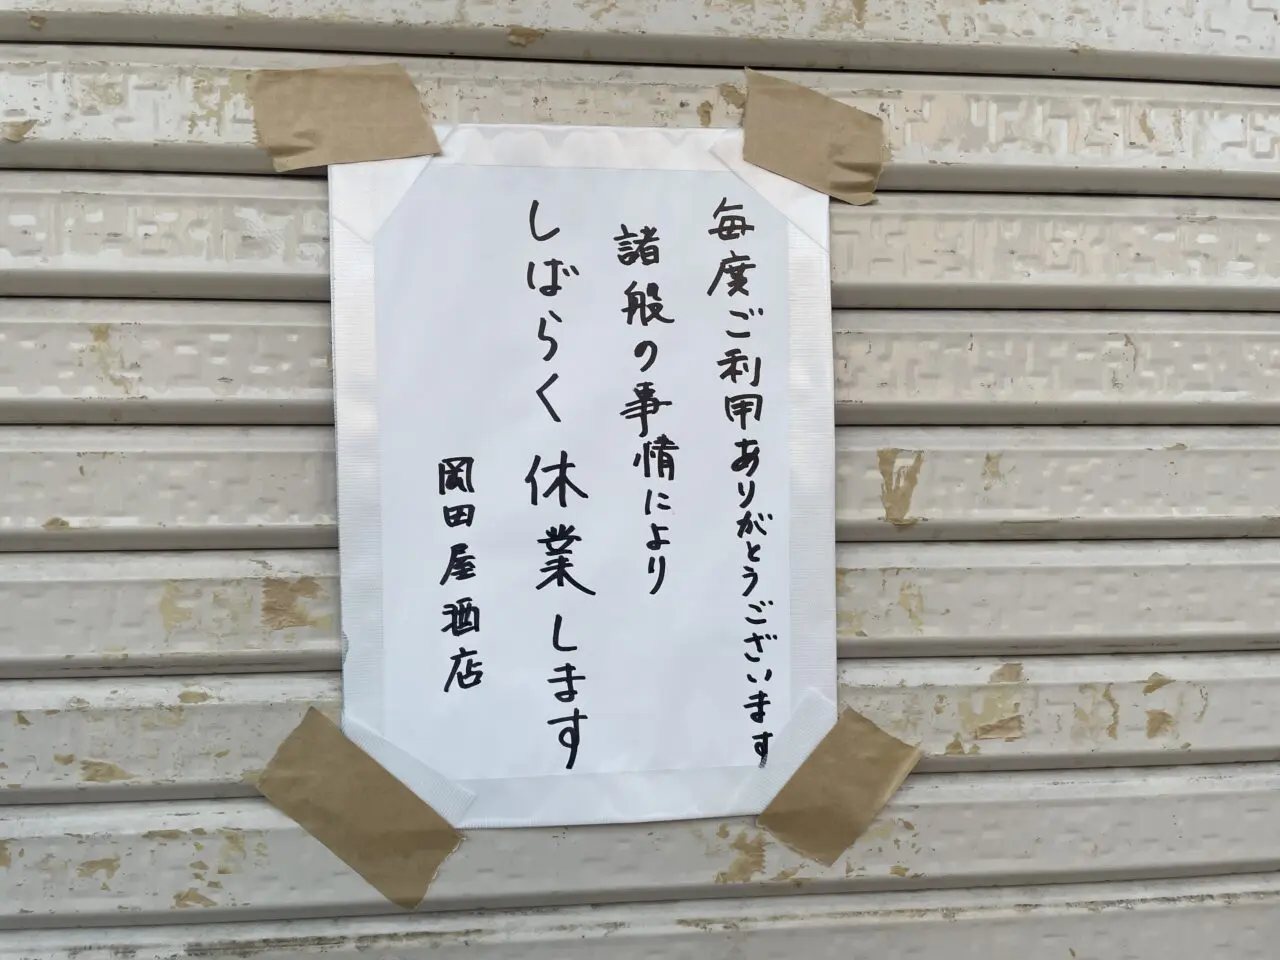 毎度ご利用ありがとうございます
諸般の事情により
しばらく休業します
岡田屋酒店